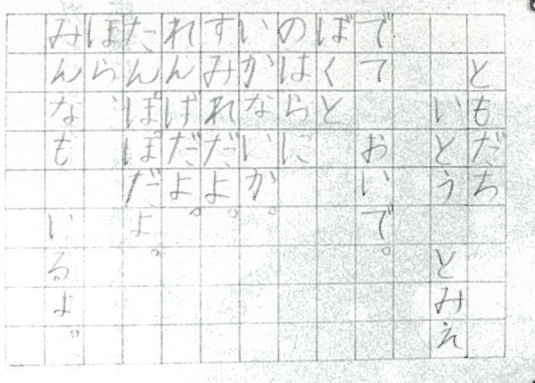 ともだち
いとう とみえ
でて おいで。
ぼくと
のはらに
いかないか。
すみれだよ。
れんげだよ。
たんぽぽだよ。
ほら、
みんなも いるよ。